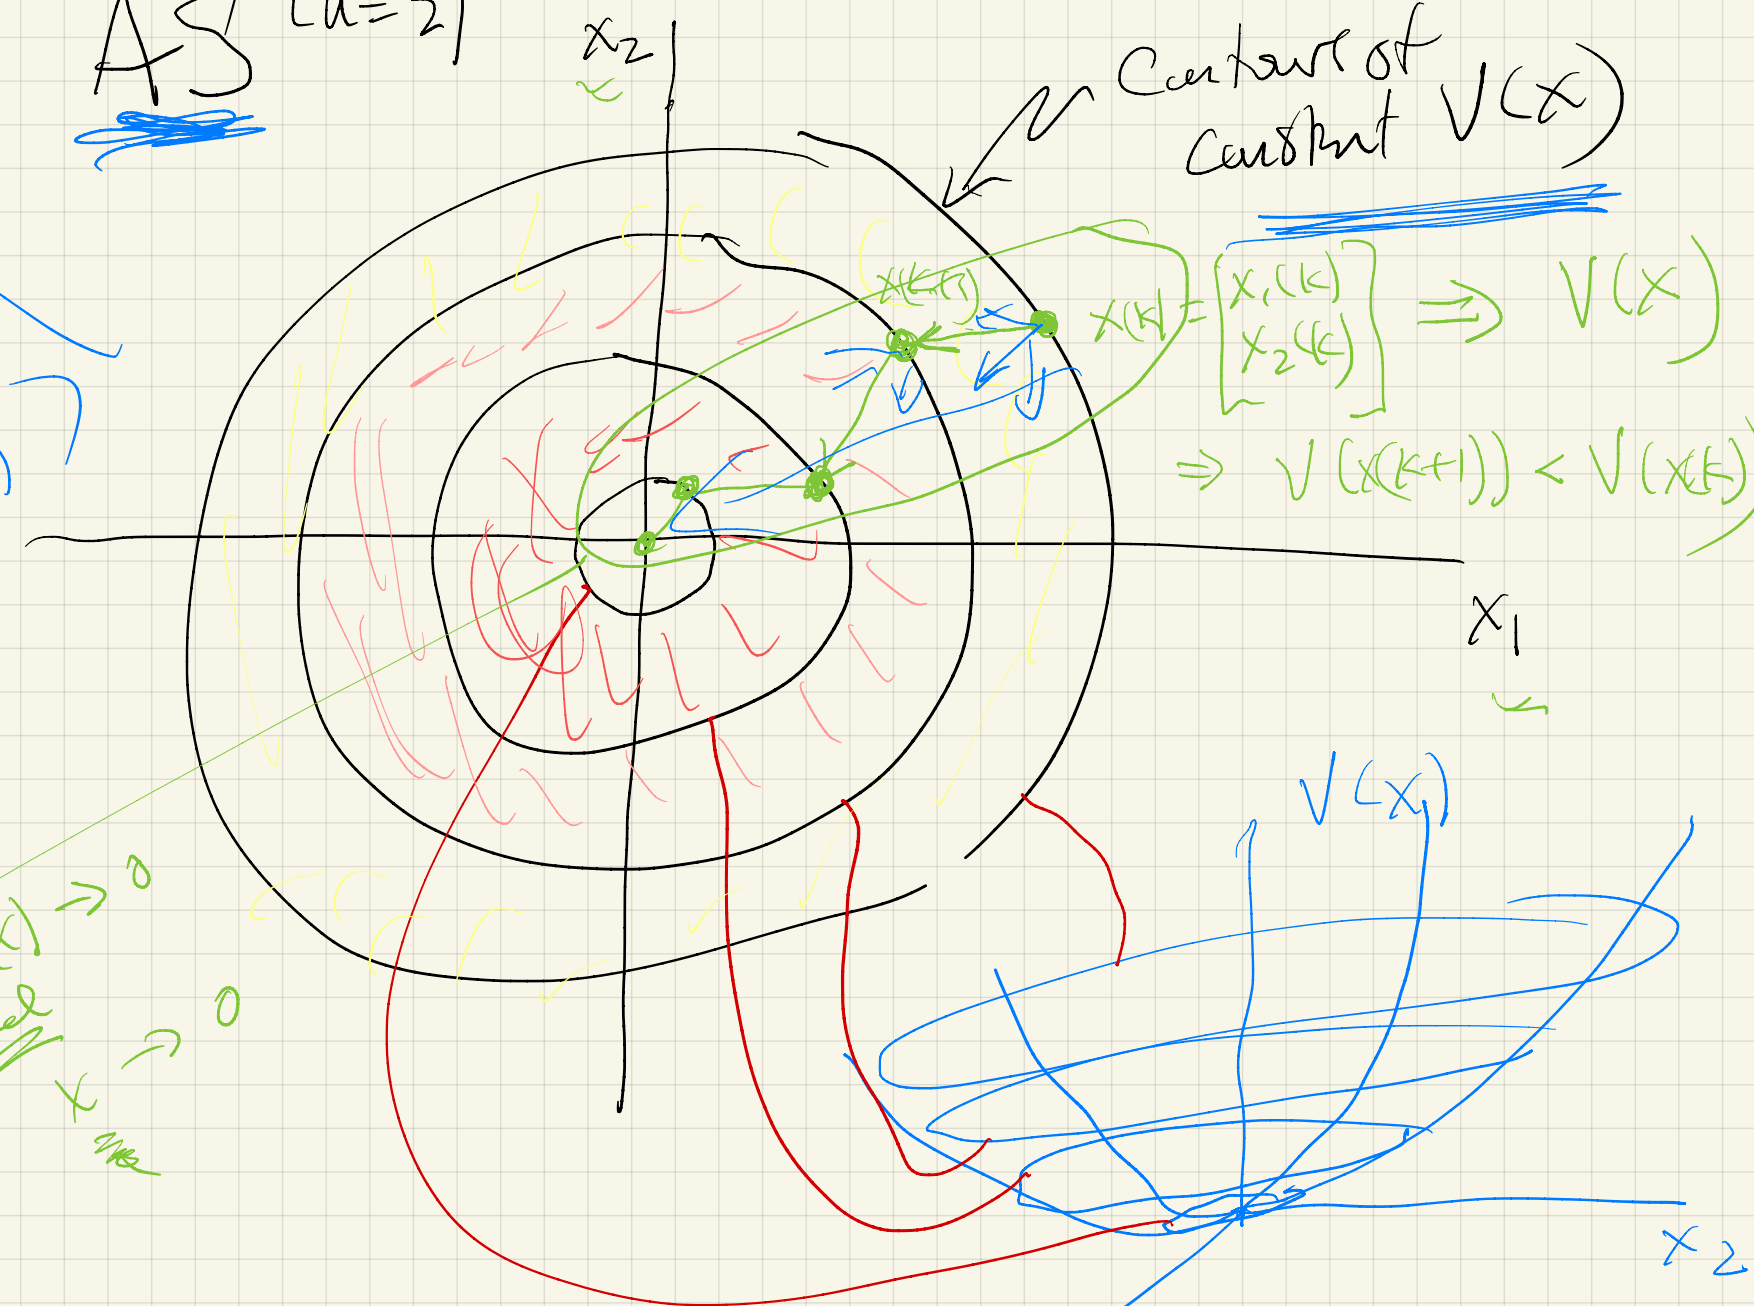 AS (n=2)
x₂
Contours of
constant V(x)
x(k+1)
x(k) = [x₁(k) x₂(k)] ⇒ V(x)
⇒ V(x(k+1)) < V(x(k))
x₁
V(x)
→ 0
x → 0
x₂